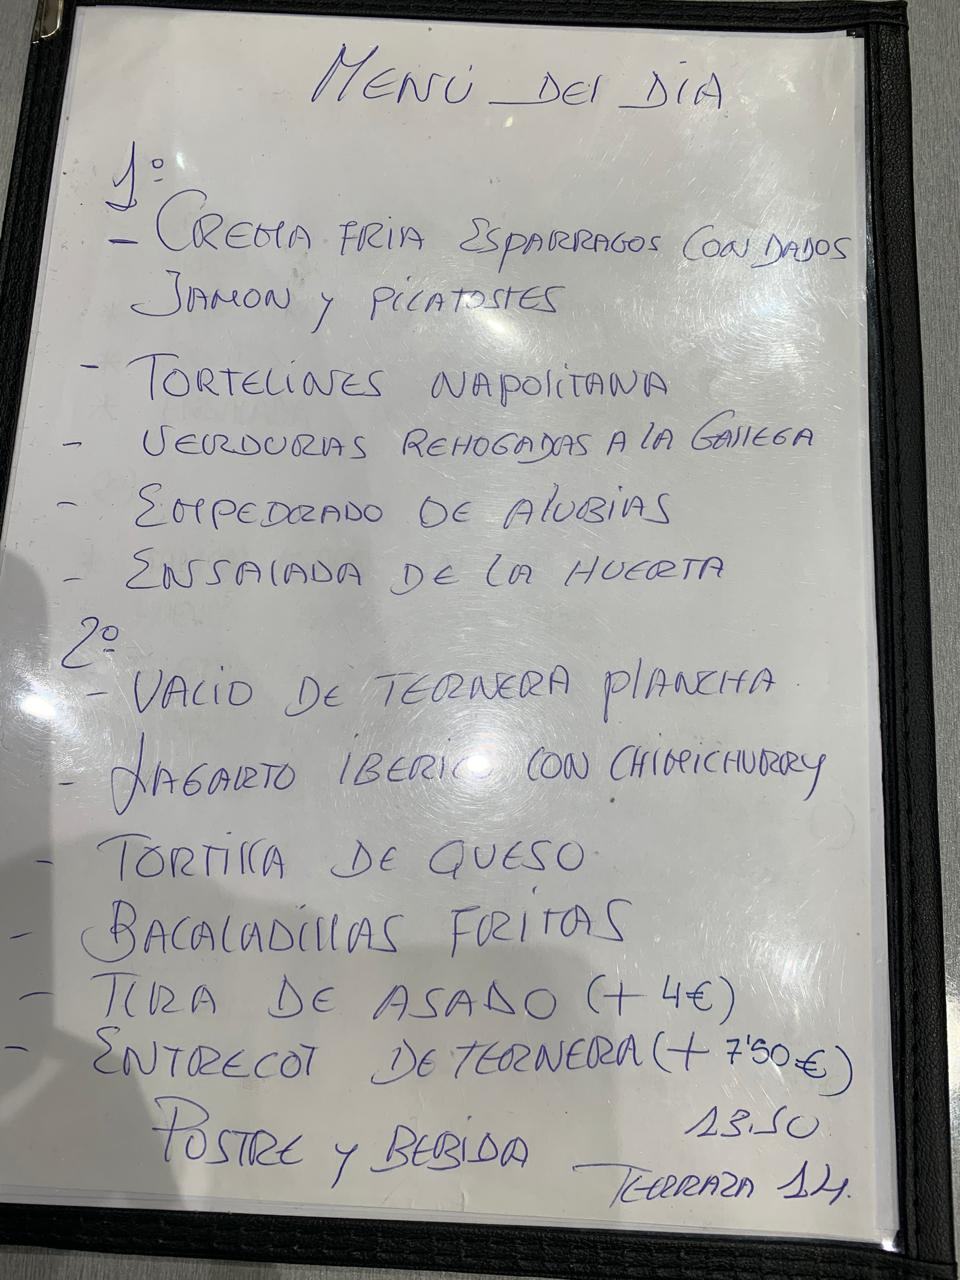 MENÚ DEL DIA
1º
- CREMA FRIA ESPARRAGOS CON DADOS
JAMON Y PICATOSTES
- TORTELINES NAPOLITANA
- VERDURAS REHOGADAS A LA GALLEGA
- EMPEDRADO DE ALUBIAS
- ENSALADA DE LA HUERTA
2º
- VACIO DE TERNERA PLANCHA
- LAGARTO IBERICO CON CHIMICHURRY
- TORTILLA DE QUESO
- BACALADILLAS FRITAS
- TIRA DE ASADO (+ 4€)
- ENTRECOT DE TERNERA (+ 7'50€)
POSTRE Y BEBIDA 13.50
TERRAZA 14.